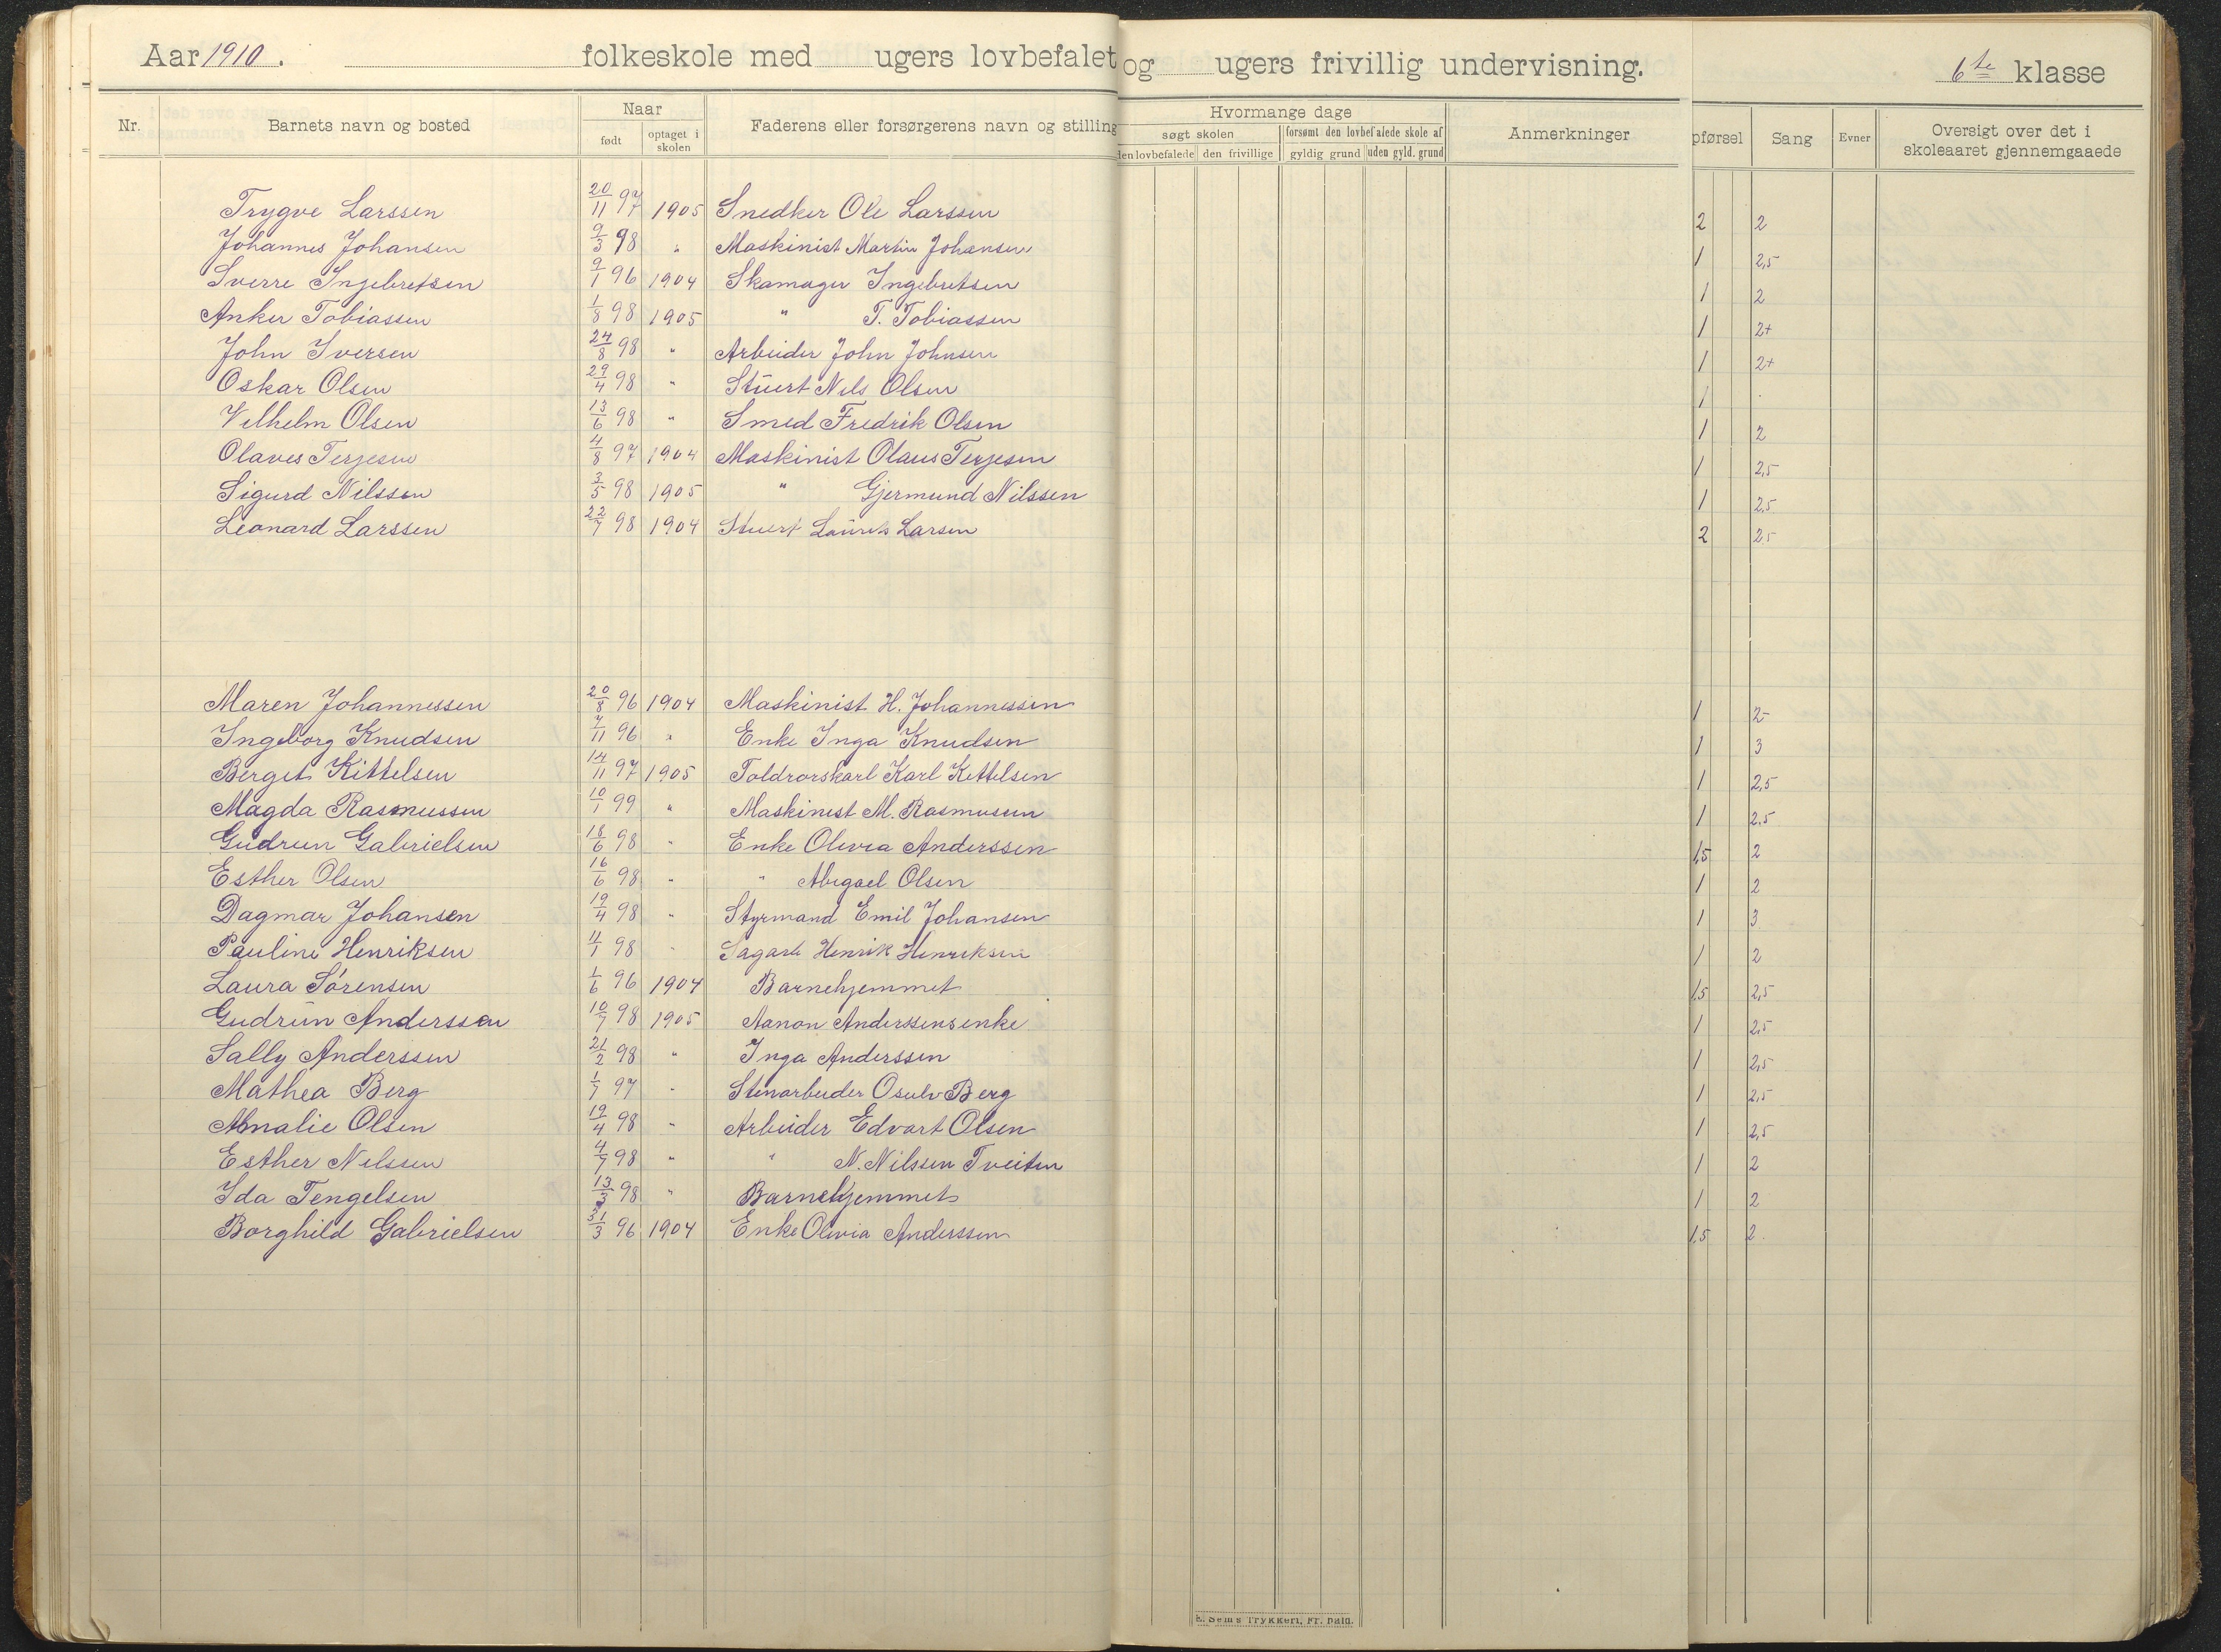 Aar 1910. folkeskole med ugers lovbefalet og ugers frivillig undervisning. 6te klasse
Nr. Barnets navn og bosted Naar født optaget i skolen Faderens eller forsørgerens navn og stilling Hvormange dage søgt skolen den lovbefalede den frivillige forsømt den lovbefalede skole af gyldig grund uden gyld. grund Anmerkninger pførsel Sang Evner Oversigt over det i skoleaaret gjennemgaaede
Trygve Larssen 20/11 97 1905 Snedker Ole Larssen 2 2
Johannes Johansen 9/3 98 " Maskinist Martin Johansen 1 2,5
Sverre Ingebretsen 9/1 96 1904 Skomager Ingebretsen 1 2
Anker Tobiassen 1/8 98 1905 " T. Tobiassen 1 2+
John Iversen 24/8 98 " Arbeider John Johnsen 1 2+
Oskar Olsen 29/4 98 " Stuert Nils Olsen 1
Vilhelm Olsen 13/6 98 " Smed Fredrik Olsen 1 2
Olaves Terjesen 4/8 97 1904 Maskinist Olaus Terjesen 1 2,5
Sigurd Nilssen 3/5 98 1905 " Gjermund Nilssen 1 2,5
Leonard Larssen 22/7 98 1904 Stuert Laurits Larsen 2 25
Maren Johannessen 20/8 96 1904 Maskinist H. Johannessen 1 2-
Ingeborg Knudsen 7/11 96 " Enke Inga Knudsen 1 3
Berget Kittelsen 14/11 97 1905 Toldrorskarl Karl Kettelsen 1 2,5
Magda Rasmussen 10/1 99 " Maskinist M. Rasmusen 1 2,5
Gudrun Gabrielsen 18/6 98 " Enke Olivia Anderssen 1,5 2
Esther Olsen 16/6 98 " " Abigael Olsen 1 2
Dagmar Johansen 19/4 98 " Styrmand Emil Johansen 1 3
Pauline Henriksen 11/1 98 " Sagarb Henrik Henriksen 1 2
Laura Sørensen 1/6 96 1904 Barnehjemmet 1,5 2,5
Gudrun Anderssen 10/7 98 1905 Aanon Anderssens enke 1 2,5
Sally Anderssen 21/2 98 " Inga Anderssen 1 2,5
Mathea Berg 1/7 97 " Stenarbeider Osulv Berg 1 2,5
Amalie Olsen 19/4 98 " Arbeider Edvart Olsen 1 2,5
Esther Nilssen 4/7 98 " " N. Nilssen Tveiten 1 2
Ida Tengelsen 13/3 98 " Barnehjemmet 1 2
Borghild Gabrielsen 31/3 96 1904 Enke Olivia Anderssen 1,5 2
E. Sem's Trykkeri, Fr.hald.